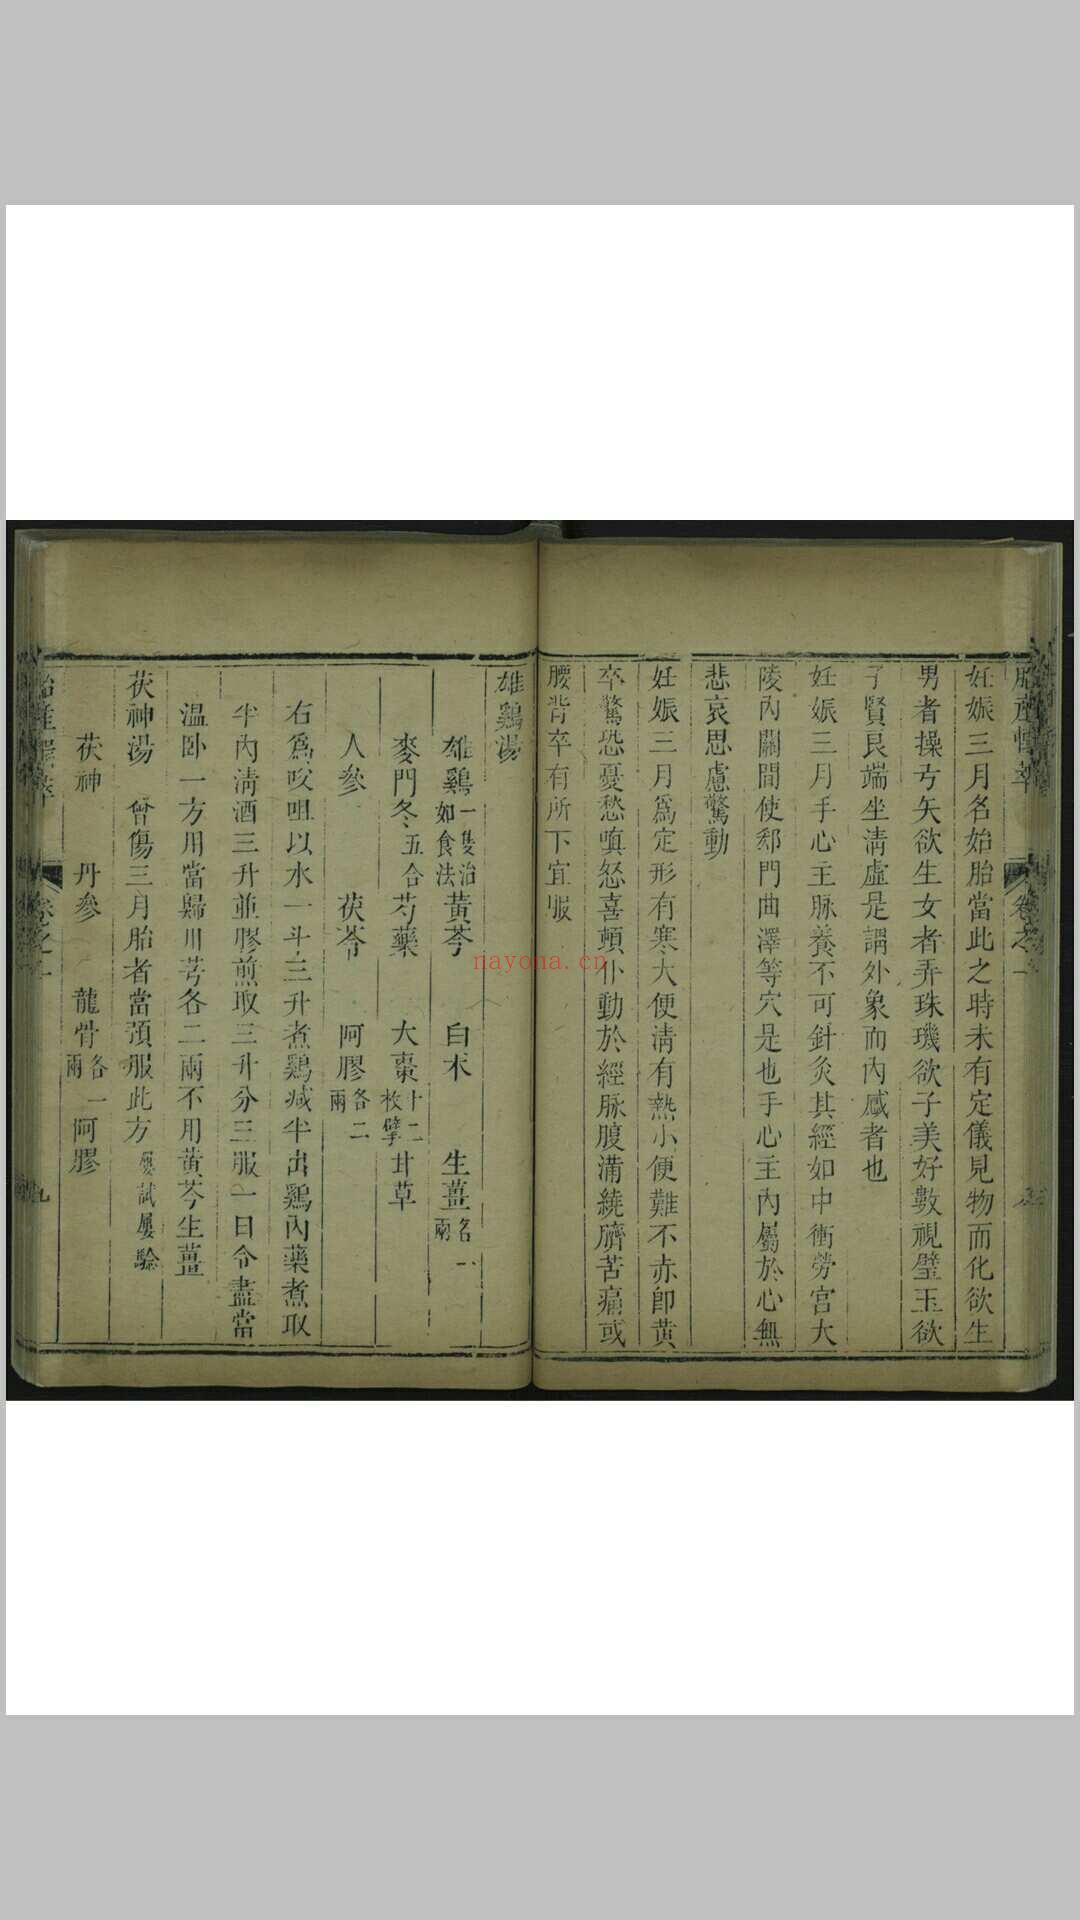 妊娠三月名始胎當此之時未有定儀見物而化欲生
男者操弓矢欲生女者弄珠璣欲子美好數視璧玉欲
子賢良端坐清虛是謂外象而內感者也
妊娠三月手心主脉養不可針灸其經如中衝勞宮大
陵內關間使郄門曲澤等穴是也手心主內屬於心無
悲哀思慮驚動
妊娠三月爲定形有寒大便清有熱小便難不赤卽黄
卒驚恐憂愁嗔怒喜頓仆動於經脉腹滿繞臍苦痛或
腰背卒有所下宜服
雄鷄湯
雄鷄一隻治如食法 黃芩 白术 生薑各一兩
麥門冬五合 芍藥 大棗十二枚擘 甘草
人參 茯苓 阿膠各二兩
右爲㕮咀以水一斗三升煮鷄减半出鷄內藥煮取
半內清酒三升並膠煎取三升分三服一日令盡當
温卧一方用當歸川芎各二兩不用黃芩生薑
茯神湯 曾傷三月胎者當預服此方屢試屢驗
茯神 丹參 龍骨各一兩 阿膠
nayona.cn